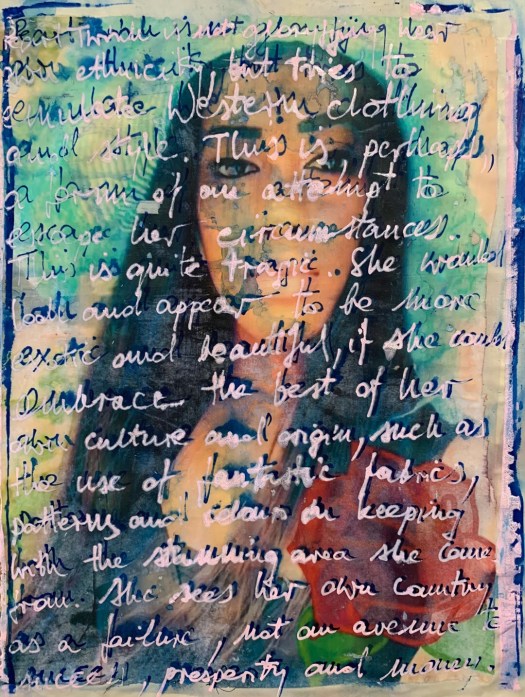 is not glorifying her
own ethnicity, but tries to
emulate Western clothing
and style. This is, perhaps,
a form of an attempt to
escape her circumstances.
This is quite tragic. She would
look and appear to be more
exotic and beautiful, if she could
Embrace the best of her
own culture and origin, such as
the use of fantastic fabrics,
patterns and colours in keeping
with the stunning area she came
from. She sees her own country
as a failure, not an avenue to
succeed, prosperity and money.